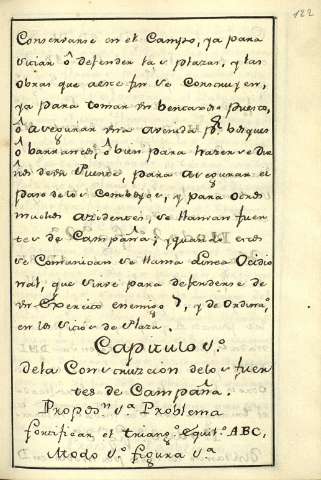 122
Conservarse en el Campo, ya para
viciar ô defender las plazas, y las
obras que a este fin se Construyen,
ya para tomar un bentajoso puesto,
ô asegurar una avenida pr. bosques
ô barrancos, ô bien para hazerse Due
ños de un Puente, para asegurar el
paso de los Comboyes, y para otros
muchos accidentes, se llaman fuer
tes de Campaña; y quando estos
se Comunican se llama Linea
que sirve para defenderse de
un Exercito enemigo, y de Ordinaro.
en los Sitios de Plaza.
Capitulo 1o.
dela Construzcion delos fuer
tes de Campaña.
Proposn. 1a. Problema
fortificar el triango. Equilo. ABC,
Modo 1o. figura 1a